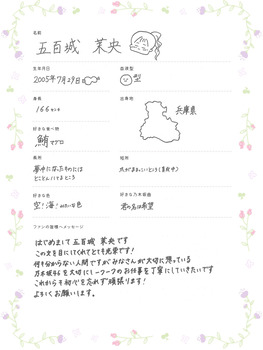 名前
五百城 茉央
生年月日
2005年7月29日
血液型
O型
身長
166センチ
出身地
兵庫県
好きな食べ物
鮪 マグロ
長所
夢中になったものには
とことんいけるところ
短所
爪があまいところ(直し中)
好きな色
空!海!みたいな色
好きな乃木坂曲
君の名は希望
ファンの皆様へメッセージ
はじめまして五百城 茉央です
この文を目にしてくれてとても光栄です!
何も分からない人間ですがみなさんが大切に想っている
乃木坂46を大切に一つ一つのお仕事を丁寧にしていきたいです
これからも初心を忘れず頑張ります!
よろしくお願いします。